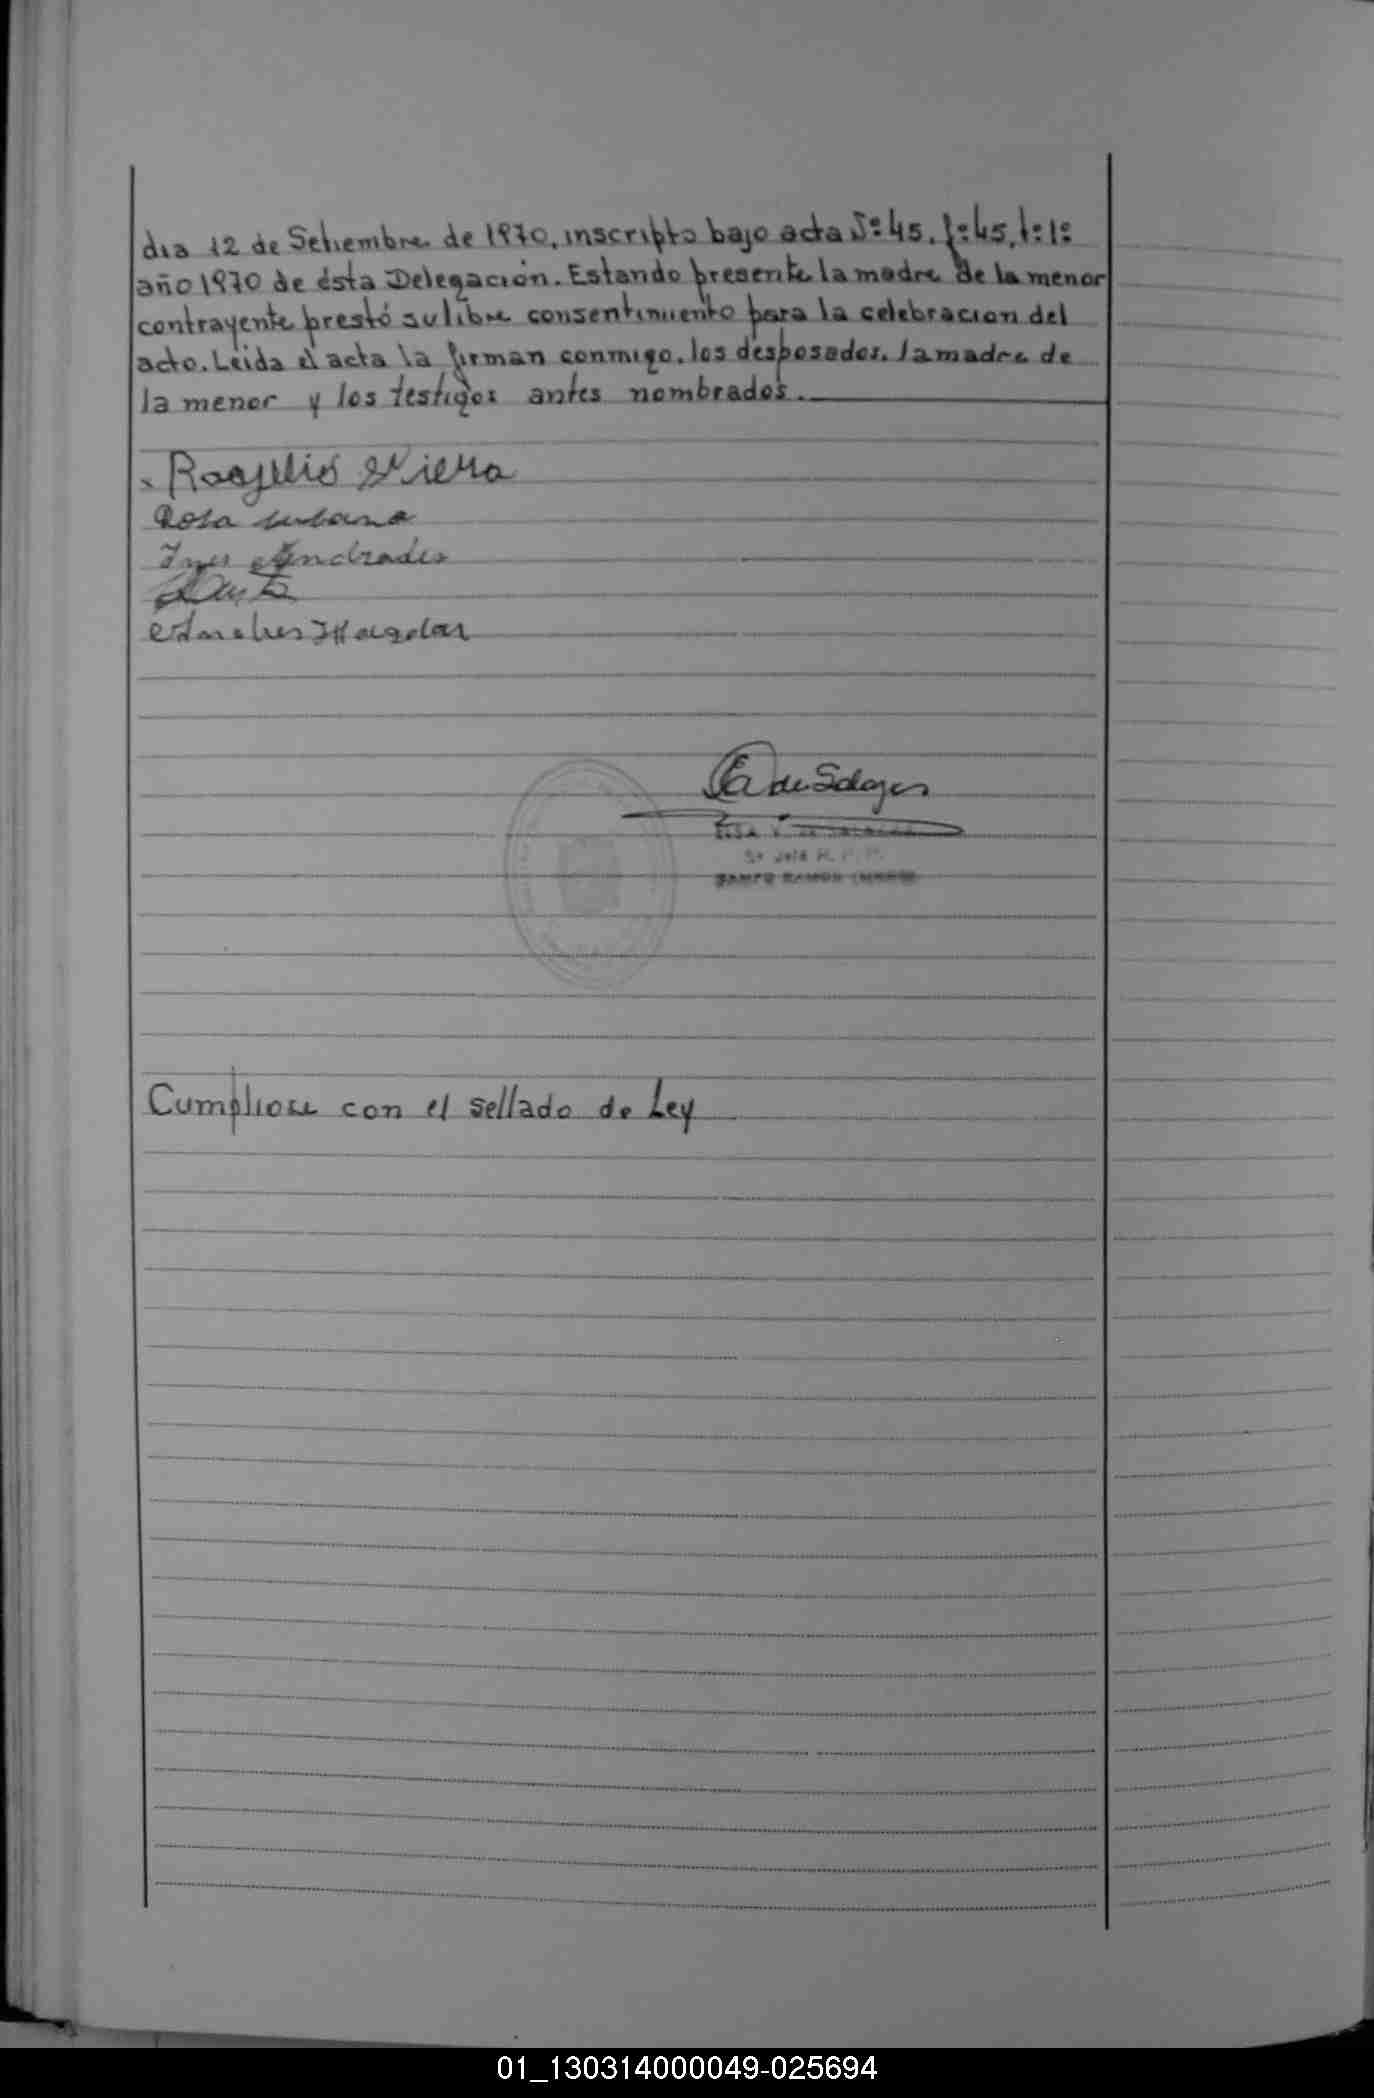 dia 12 de Setiembre de 1970, inscripto bajo acta Nº:45. fº:45, tº:1º
año 1970 de ésta Delegación. Estando presente la madre de la menor
contrayente prestó su libre consentimiento para la celebracion del
acto. Leida el acta la firman conmigo. los desposados, la madre de
la menor y los testigos antes nombrados.
Rogelio Viera
Rosa
Ines Andrades
de Salazar
Cumpliose con el sellado de Ley
01_130314000049-025694